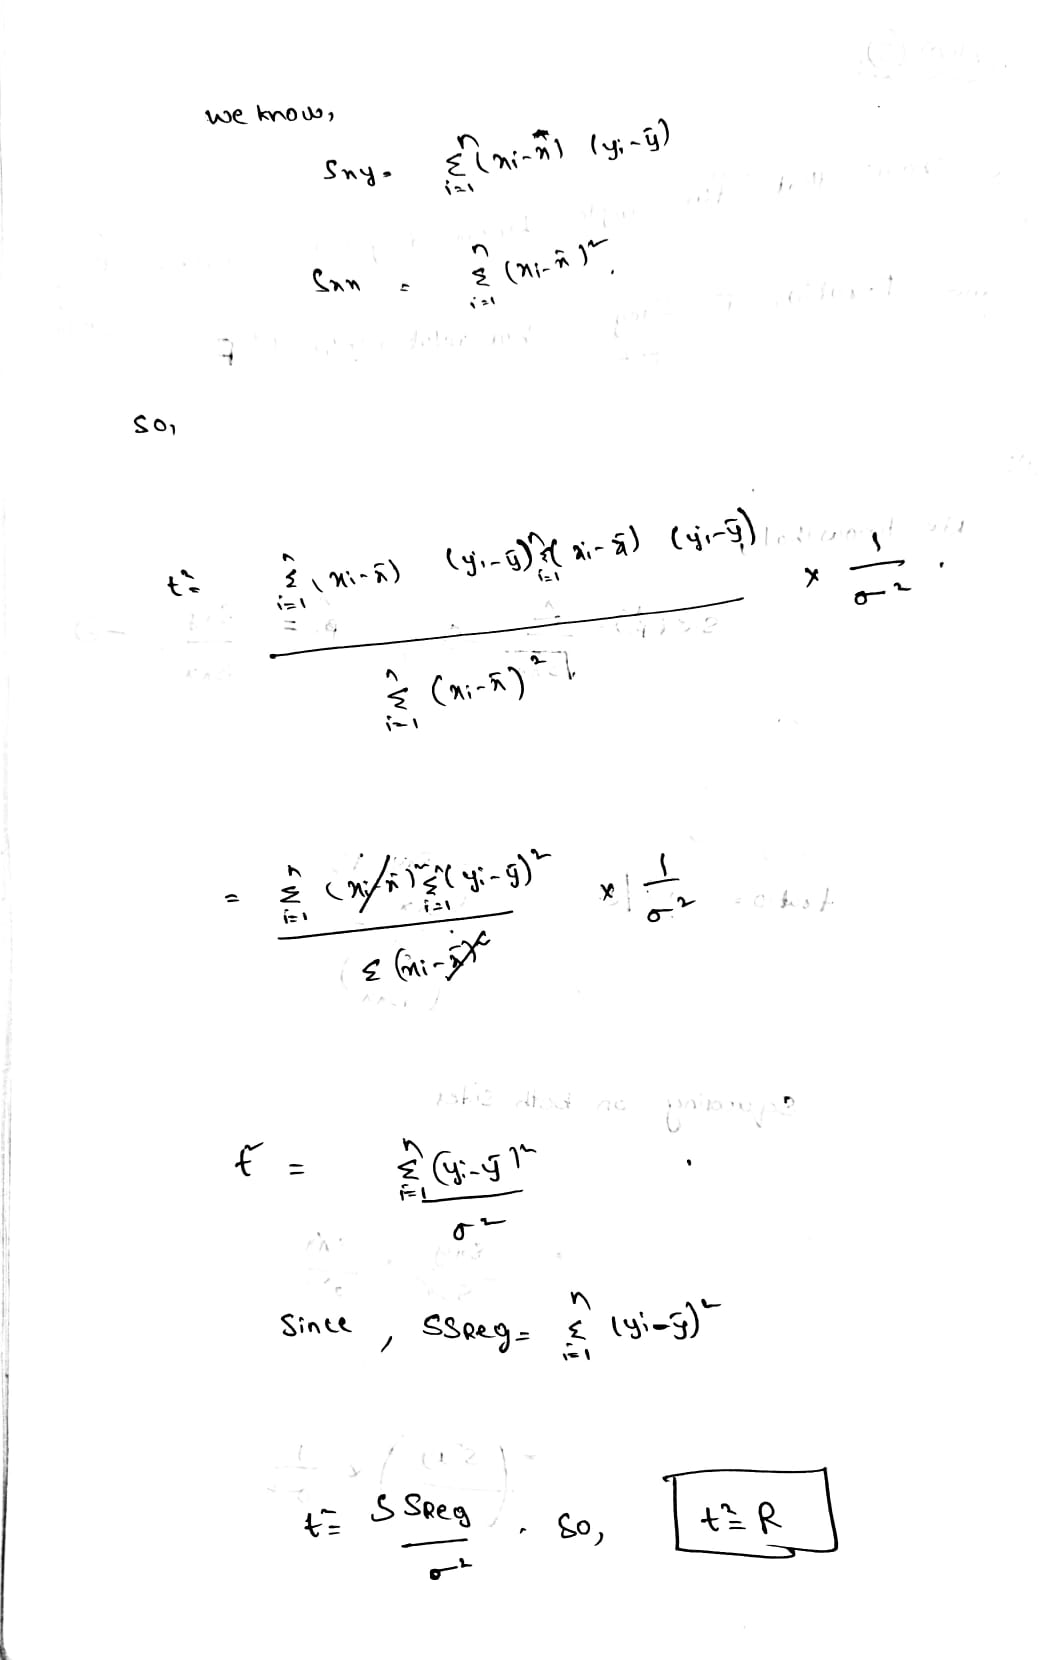 we know,
Sxy = Σ_{i=1}^{n} (xi-x̄) (yi-ȳ)
Sxx = Σ_{i=1}^{n} (xi-x̄)²
so,
t² = Σ_{i=1}^{n} (xi-x̄) (yi-ȳ) Σ_{i=1}^{n} (xi-x̄) (yi-ȳ) / Σ_{i=1}^{n} (xi-x̄)² × 1/σ²
= Σ_{i=1}^{n} (xi-x̄)² Σ_{i=1}^{n} (yi-ȳ)² / Σ (xi-x̄)² × 1/σ²
t² = Σ_{i=1}^{n} (yi-ȳ)² / σ²
Since, SSReg = Σ_{i=1}^{n} (yi-ȳ)²
t² = SSReg / σ² . So, t² = R